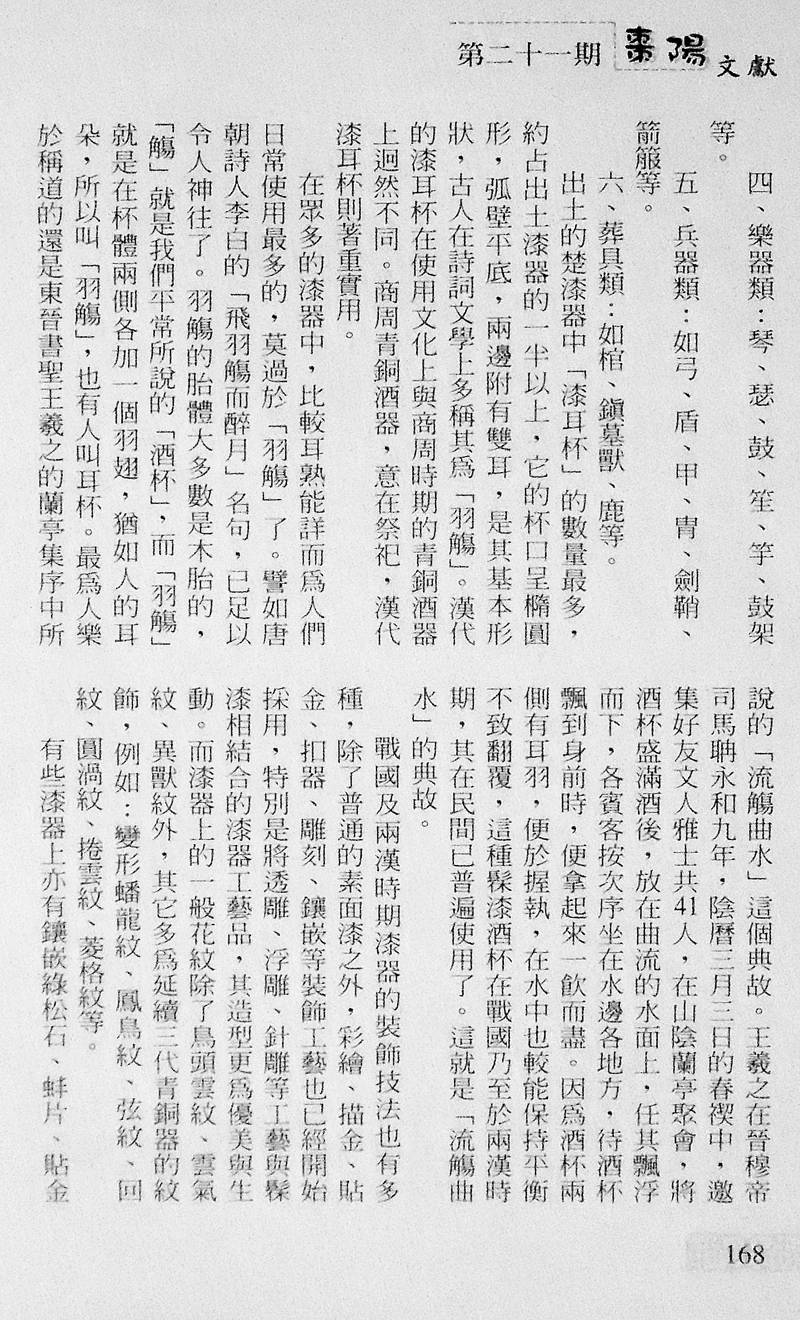 第二十一期 棗陽文獻
四、樂器類：琴、瑟、鼓、笙、竽、鼓架
等。
五、兵器類：如弓、盾、甲、冑、劍鞘、
箭箙等。
六、葬具類：如棺、鎮墓獸、鹿等。
出土的楚漆器中「漆耳杯」的數量最多，
約占出土漆器的一半以上，它的杯口呈橢圓
形，弧壁平底，兩邊附有雙耳，是其基本形
狀，古人在詩詞文學上多稱其為「羽觴」。漢代
的漆耳杯在使用文化上與商周時期的青銅酒器
上迥然不同。商周青銅酒器，意在祭祀，漢代
漆耳杯則著重實用。
在眾多的漆器中，比較耳熟能詳而為人們
日常使用最多的，莫過於「羽觴」了。譬如唐
朝詩人李白的「飛羽觴而醉月」名句，已足以
令人神往了。羽觴的胎體大多數是木胎的，
「觴」就是我們平常所說的「酒杯」，而「羽觴」
就是在杯體兩側各加一個羽翅，猶如人的耳
朵，所以叫「羽觴」，也有人叫耳杯。最為人樂
於稱道的還是東晉書聖王羲之的蘭亭集序中所
說的「流觴曲水」這個典故。王羲之在晉穆帝
司馬聃永和九年，陰曆三月三日的春禊中，邀
集好友文人雅士共41人，在山陰蘭亭聚會，將
酒杯盛滿酒後，放在曲流的水面上，任其飄浮
而下，各賓客按次序坐在水邊各地方，待酒杯
飄到身前時，便拿起來一飲而盡。因為酒杯兩
側有耳羽，便於握執，在水中也較能保持平衡
不致翻覆，這種髹漆酒杯在戰國乃至於兩漢時
期，其在民間已普遍使用了。這就是「流觴曲
水」的典故。
戰國及兩漢時期漆器的裝飾技法也有多
種，除了普通的素面漆之外，彩繪、描金、貼
金、扣器、雕刻、鑲嵌等裝飾工藝也已經開始
採用，特別是將透雕、浮雕、針雕等工藝與髹
漆相結合的漆器工藝品，其造型更為優美與生
動。而漆器上的一般花紋除了鳥頭雲紋、雲氣
紋、異獸紋外，其它多為延續三代青銅器的紋
飾，例如：變形蟠龍紋、鳳鳥紋、弦紋、回
紋、圓渦紋、捲雲紋、菱格紋等。
有些漆器上亦有鑲嵌綠松石、蚌片、貼金
168